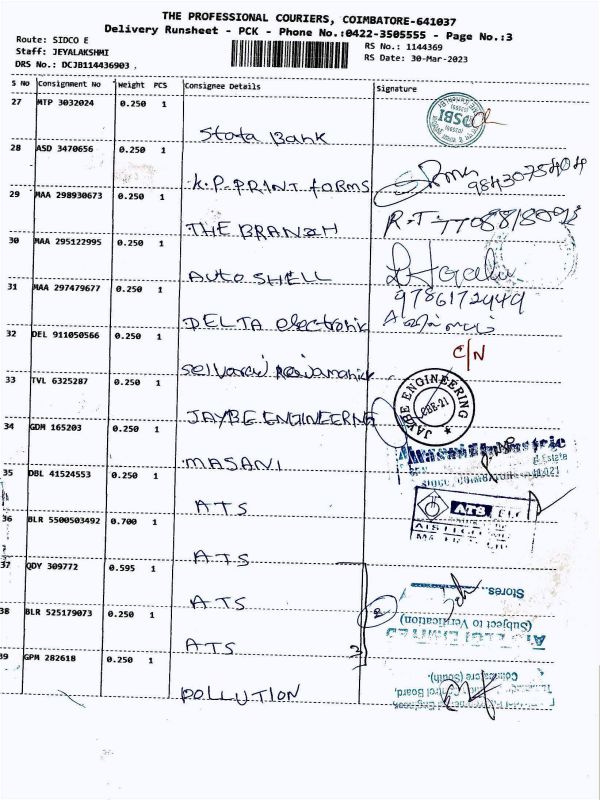 THE PROFESSIONAL COURIERS, COIMBATORE-641037
Delivery Runsheet - PCK - Phone No.:0422-3505555 - Page No.:3
Route: SIDCO E
Staff: JEYALAKSHMI
DRS No.: DCJB114436903
RS No.: 1144369
RS Date: 30-Mar-2023
S No Consignment No Weight PCS Consignee Details Signature
27 MTP 3032024 0.250 1
State Bank
SBI
28 ASD 3470656 0.250 1
K.P. PRINT forms
9843075404
29 MAA 298930673 0.250 1
THE BRANSH
R.T
30 MAA 295122995 0.250 1
Auto SHELL
9786172949
31 MAA 297479677 0.250 1
DELTA electronic
32 DEL 911050566 0.250 1
C/N
33 TVL 6325287 0.250 1
JAYBE ENGINEERING
JAYBE ENGINEERING
CBE-21
34 GDM 165203 0.250 1
MASANI
35 DBL 41524553 0.250 1
ATS
ATS ELGI
36 BLR 5500503492 0.700 1
ATS
37 QDY 309772 0.595 1
ATS
Stores
38 BLR 525179073 0.250 1
(Subject to Verification)
ATS ELGI LIMITED
ATS
39 GPM 282618 0.250 1
POLLUTION
Coimbatore (South).
Control Board,